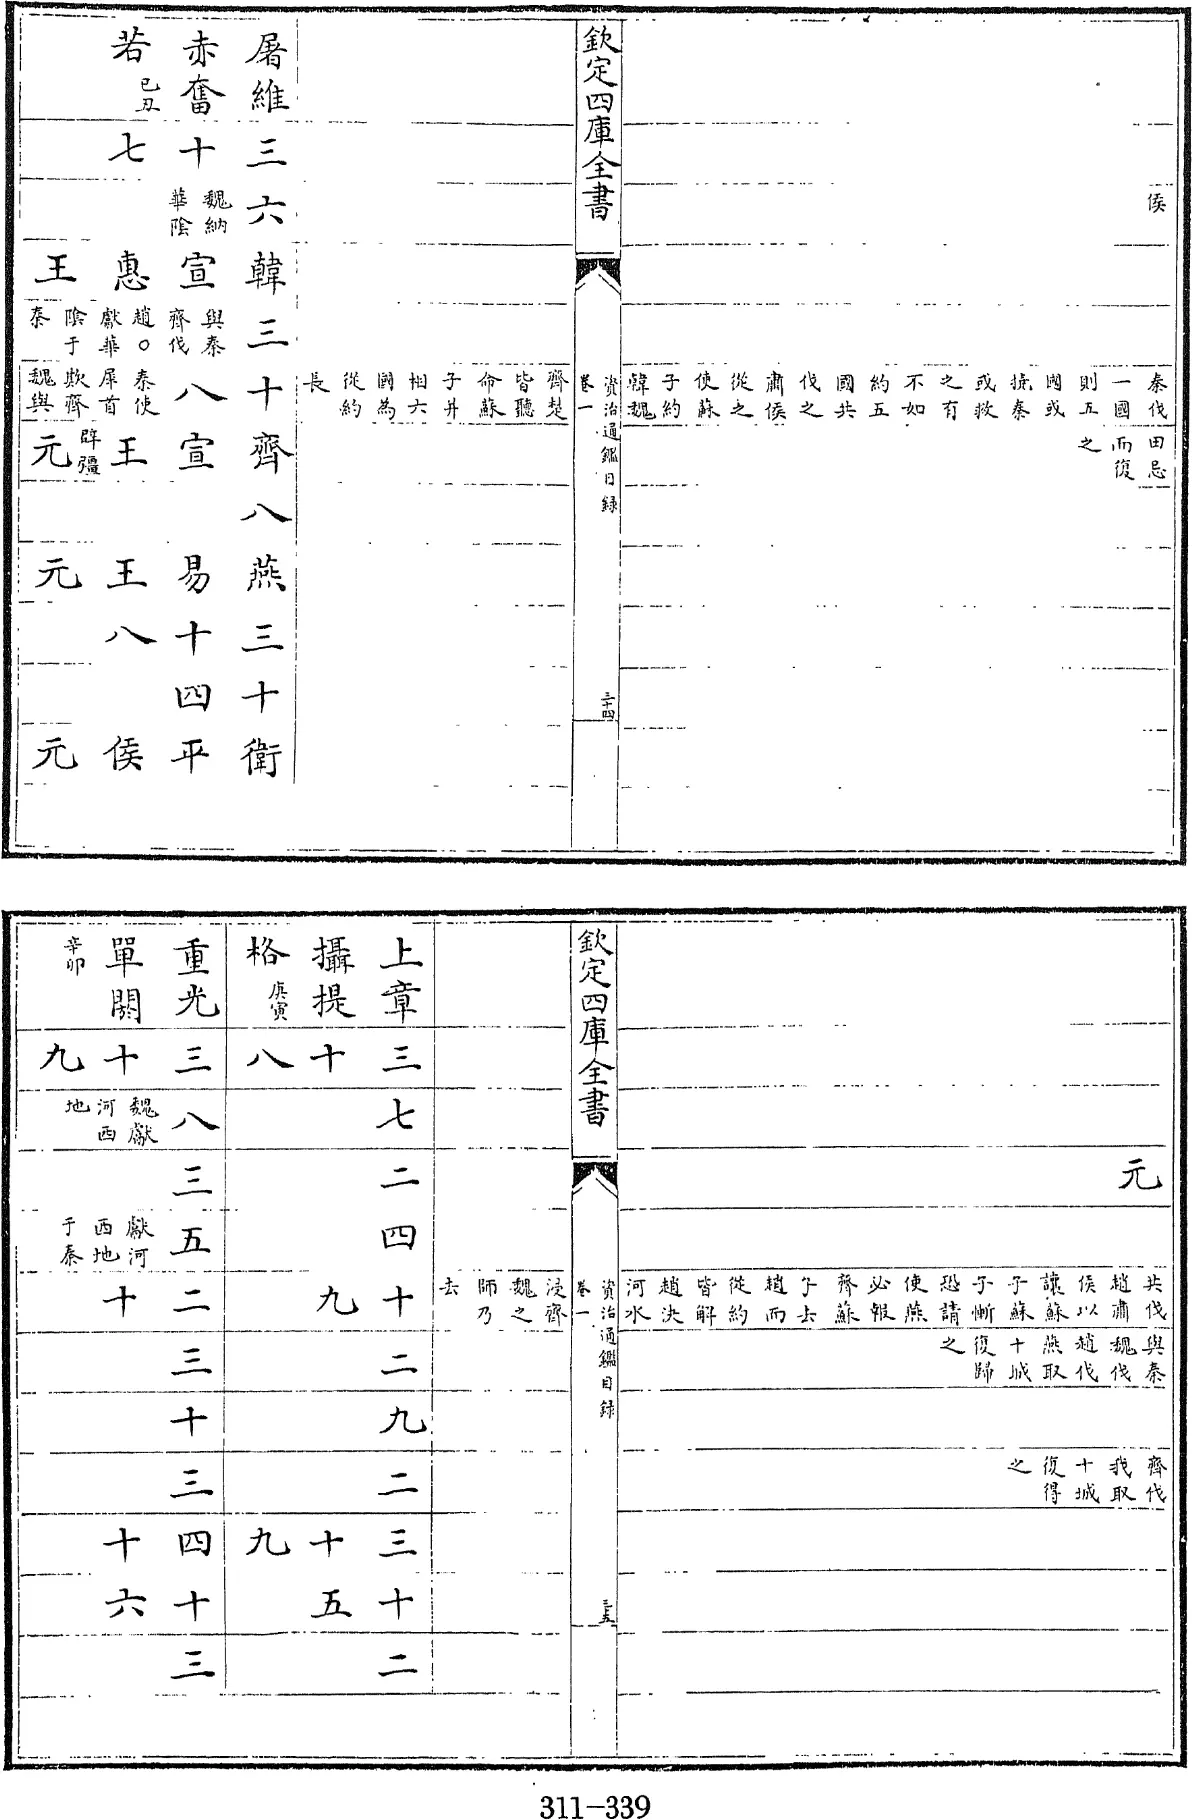 侯
秦伐一國則五國或撓秦或救之有不如約五國共伐之肅侯從之使蘇子約韓魏
田忌而復之
欽定四庫全書
資治通鑑目録
卷一
三十四
齊楚皆聽命蘇子并相六國為從約長
屠維赤奮若己丑
三十七
六魏納華陰
韓宣惠王
三與秦齊伐趙○獻華陰于秦
十八秦使犀首欺齊魏與
齊宣王辟彊元
八
燕易王元
三十八
十四
衛平侯元
元
共伐趙肅侯以讓蘇子蘇子慚恐請使燕必報齊蘇子去趙而從約皆解趙決河水
與秦魏伐趙伐燕取十城復歸之
齊伐我取十城復得之
欽定四庫全書
資治通鑑目録
卷一
三十五
浸齊魏之師乃去
上章攝提格庚寅
三十八
七
二
四
十九
二
九
二
三十九
十五
二
重光單閼辛卯
三十九
八魏獻河西地
三
五獻河西地于秦
二十
三
十
三
四十
十六
三
311-339